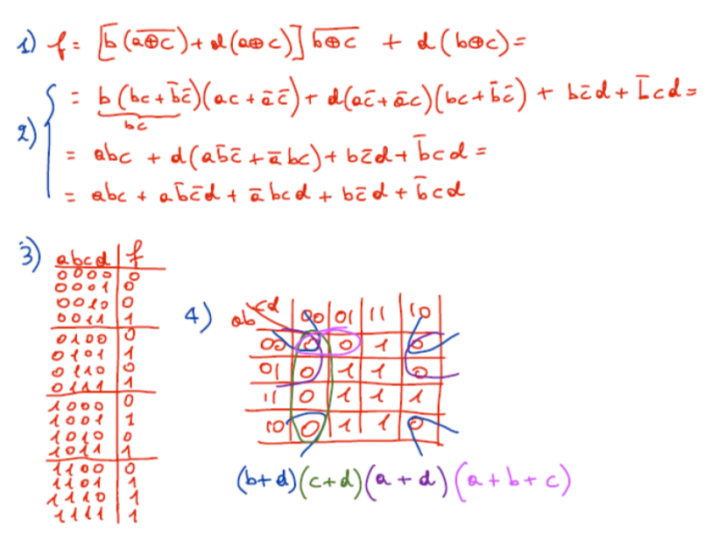 1) f = [b(\overline{a⊕c}) + d(a⊕c)] \overline{b⊕c} + d(b⊕c) =
2) = b(bc + b̄c̄)(ac + āc̄) + d(ac̄ + āc)(bc + b̄c̄) + bc̄d + b̄cd =
bc
= abc + d(ab̄c̄ + ābc) + bc̄d + b̄cd =
= abc + ab̄c̄d + ābcd + bc̄d + b̄cd
3) abcd f
0000 0
0001 0
0010 0
0011 1
0100 0
0101 1
0110 0
0111 1
1000 0
1001 1
1010 0
1011 1
1100 0
1101 1
1110 1
1111 1
4) ab cd 00 01 11 10
00 0 0 1 0
01 0 1 1 0
11 0 1 1 1
10 0 1 1 0
(b+d)(c+d)(a+d)(a+b+c)